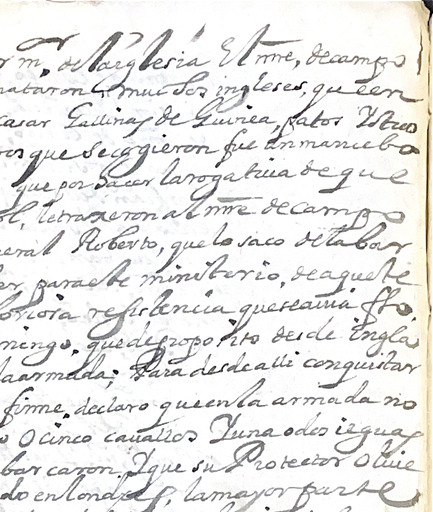 r mo. de la iglesia El mre, de campo
mataron muchos ingleses, que en
casar Gallinas de Guinea, patos Y otros
ros que se cogieron fue un mancebo
que por sacar la rogativa de que
ol, le traxeron al mre de campo
neral Roberto, que lo saco de la bar
er para este ministerio, de aqueste
loriosa resistencia que se avia fho,
mingo, que de proposito desde ingla
la armada; Para desde alli conquistar
firme, declaro que en la armada no
o o cinco cavallos Y una o dos ieguas
barcaron, Y que su Protector Olive
do en londres, la mayor parte